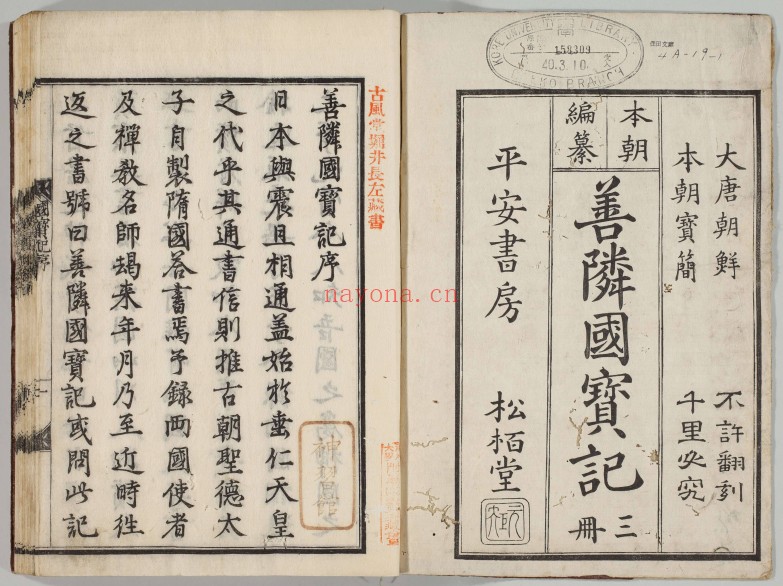 保田文庫
4A-19-1
KOBE UNIVERSITY LIBRARY
158309
40.3.10
BRANCH
大唐朝鮮
本朝寶簡
不許翻刻
千里必究
本朝
編纂
善隣國寶記
三冊
平安書房
松栢堂
古風堂
井長左藏書
善隣國寶記序
日本與震旦相通蓋始於垂仁天皇
之代乎其通書信則推古朝聖德太
子自製隋國答書焉予録两國使者
及禅教名師朅来年月乃至近時徃
返之書號曰善隣國寶記或問此記
國寶記序
nayona.cn